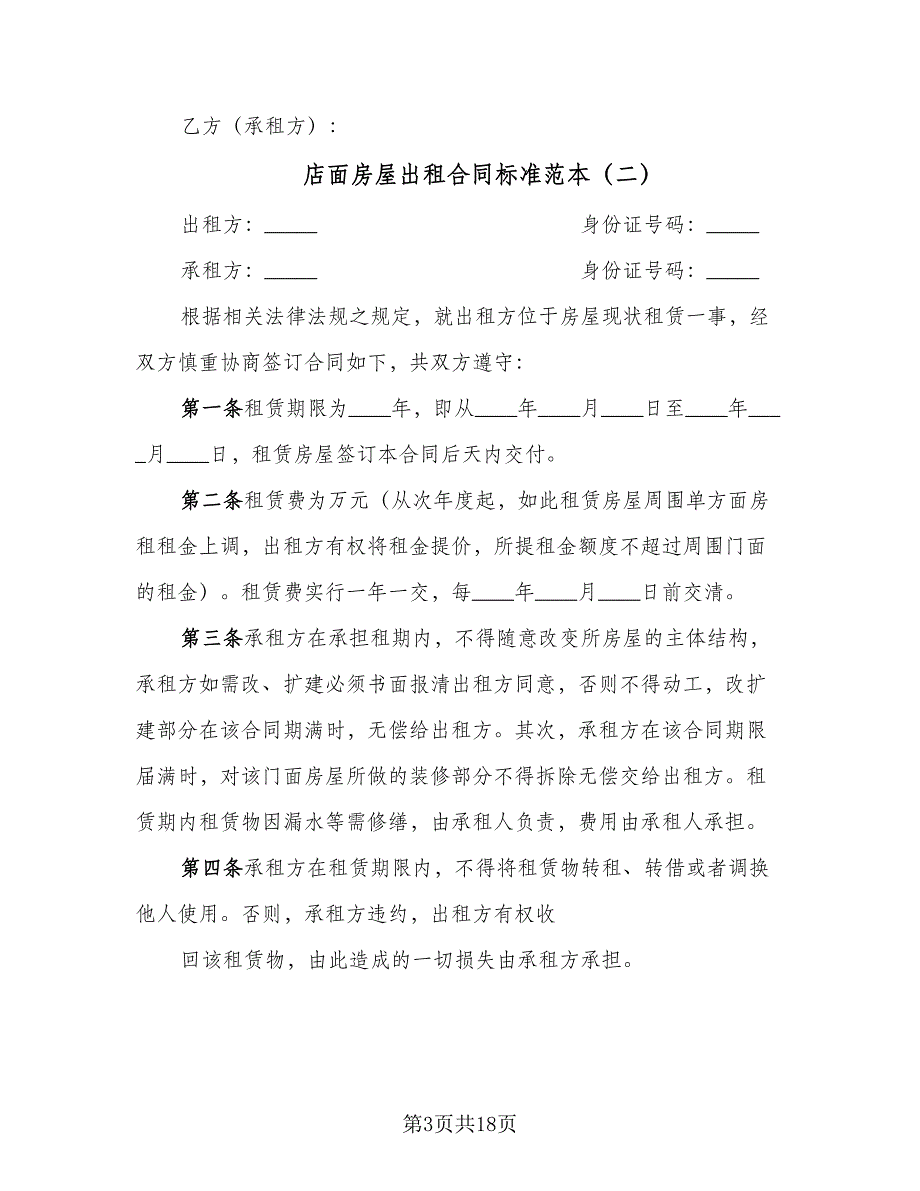 乙方（承租方）：
店面房屋出租合同标准范本（二）
出租方：_____ 身份证号码：_____
承租方：_____ 身份证号码：_____
根据相关法律法规之规定，就出租方位于房屋现状租赁一事，经
双方慎重协商签订合同如下，共双方遵守：
第一条租赁期限为____年，即从____年____月____日至____年___
_月____日，租赁房屋签订本合同后天内交付。
第二条租赁费为万元（从次年度起，如此租赁房屋周围单方面房
租租金上调，出租方有权将租金提价，所提租金额度不超过周围门面
的租金）。租赁费实行一年一交，每____年____月____日前交清。
第三条承租方在承担租期内，不得随意改变所房屋的主体结构，
承租方如需改、扩建必须书面报清出租方同意，否则不得动工，改扩
建部分在该合同期满时，无偿给出租方。其次，承租方在该合同期限
届满时，对该门面房屋所做的装修部分不得拆除无偿交给出租方。租
赁期内租赁物因漏水等需修缮，由承租人负责，费用由承租人承担。
第四条承租方在租赁期限内，不得将租赁物转租、转借或者调换
他人使用。否则，承租方违约，出租方有权收
回该租赁物，由此造成的一切损失由承租方承担。
第3页共18页